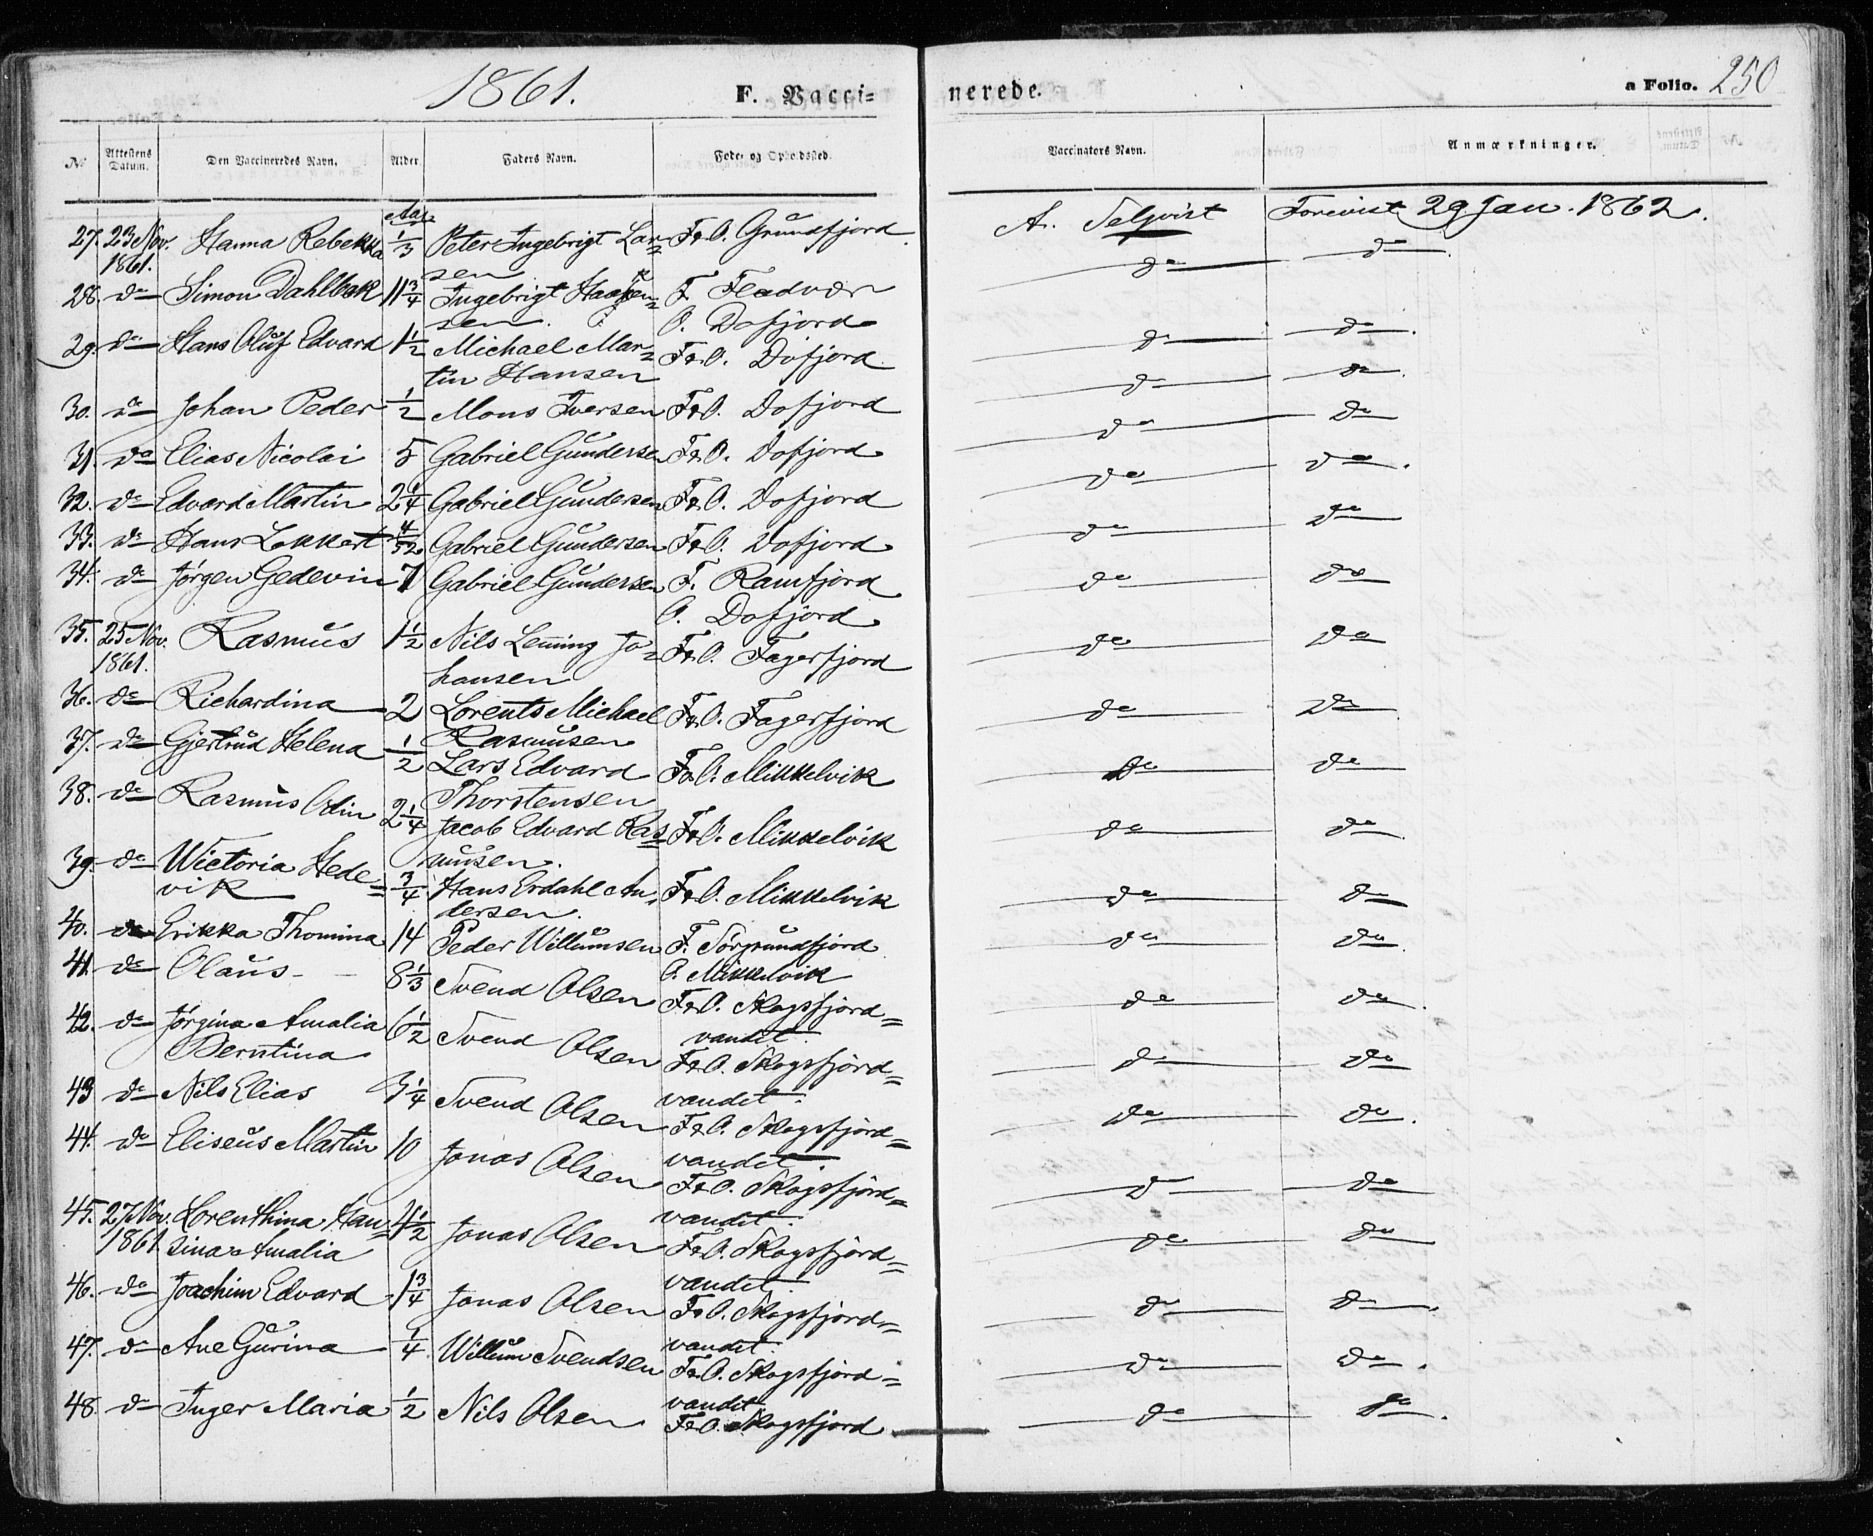 1861. F. Vacci= nerede. a Folio. 250
No Attestens Datum. Den Vaccineredes Navn. Alder Faders Navn. Føde- og Opholdssted. Vaccinators Navn. Anmærkninger.
Aar
27. 23 Nov. Hanna Rebekka 1/3 Peter Ingebrigt Lar= F&O. Grundfjord A. Seljvist Forevist 29 Jan. 1862.
1861. sen
28. do Simon Dahlbak 11 3/4 Ingebrigt Haagen= F. Fladvær do do
sen. O. Dofjord
29. do Hans Oluf Edvard 1 1/2 Michael Mar= F&O. Dofjord do do
tin Hansen
30. do Johan Peder 1/2 Mons Iversen F&O. Dofjord do do
31. do Elias Nicolai 5 Gabriel Gundersen F&O. Dofjord do do
32. do Edvard Martin 2 1/4 Gabriel Gundersen F&O. Dofjord do do
33. do Hans Lokkert 4/52 Gabriel Gundersen F&O. Dofjord do do
34. do Jørgen Gedevin 7 Gabriel Gundersen F. Ramfjord do do
O. Dofjord
35. 25 Nov. Rasmus 1 1/2 Nils Leming Jo= F&O. Fagerfjord do do
1861. hansen
36. do Richardina 2 Lorents Michael F&O. Fagerfjord do do
Rasmusen
37. do Gjertrud Helena 1/2 Lars Edvard F&O. Mikkelvik do do
Thorstensen
38. do Rasmus Odin 2 1/4 Jacob Edvard Ras= F&O. Mikkelvik do do
musen.
39. do Wictoria Hede= 3/4 Hans Erdahl An= F&O. Mikkelvik do do
vik dersen.
40. do Erikka Thomina 14 Peder Willumsen F. Sørgrundfjord do do
O. Mikkelvik
41. do Olaus 8 1/3 Svend Olsen F&O. Skogsfjord= do do
vandet.
42. do Jørgina Amalia 6 1/2 Svend Olsen F&O. Skogsfjord= do do
Berntina vandet.
43 do Nils Elias 3 1/4 Svend Olsen F&O. Skogsfjord= do do
vandet.
44. do Eliseus Martin 10 Jonas Olsen F&O. Skogsfjord= do do
vandet.
45. 27 Nov. Lorenthina Han= 4 1/2 Jonas Olsen F&O. Skogsfjord= do do
1861 sina Amalia vandet.
46. do Joachim Edvard 1 3/4 Jonas Olsen F&O. Skogsfjord= do do
vandet.
47. do Ane Gurina 1/4 Willum Svendsen F&O. Skogsfjord= do do
vandet
48. do Inger Maria 1/2 Nils Olsen F&O. Skogsfjord do do